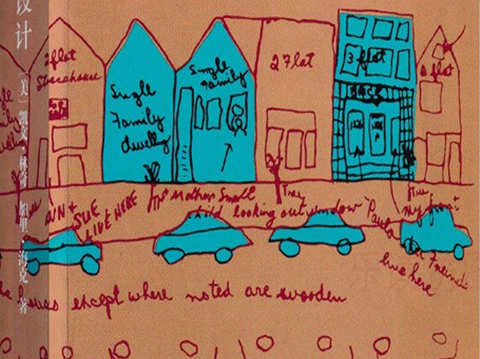 设计
[美] 凯文·林奇 加里·海克 著
2 flat
Storehouse
Single
Family
dwelling
Single
family
2 Flat
3 flat
flat
Tree
Tree
ANN + SUE
LIVE HERE
Mrs Mathers Small
child looking out window
Paula
my front
live here
houses except where noted are wooden